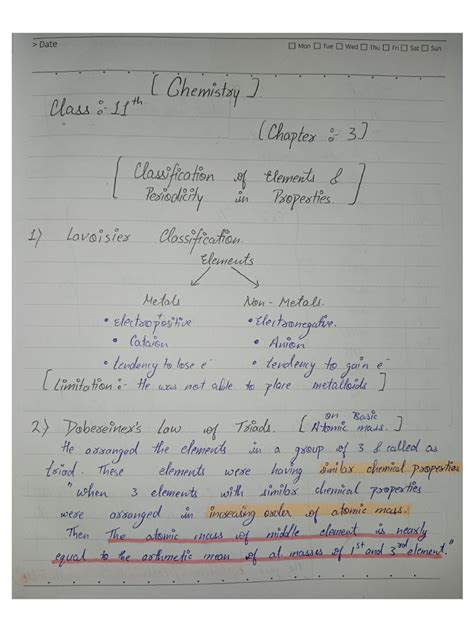 > Date
☐ Mon ☐ Tue ☐ Wed ☐ Thu ☐ Fri ☐ Sat ☐ Sun
[Chemistry]
Class :- 11th
(Chapter :- 3)
[Classification of Elements &
Periodicity in Properties.]
1) Lavoisier Classification
Elements
Metals Non-Metals.
• Electropositive • Electronegative.
• Cataion • Anion
• tendency to lose e⁻ • tendency to gain e⁻
[Limitation :- He was not able to place metalloids]
2) Dobereiner's Law of Triads. [on Basic
Atomic mass.]
He arranged the elements in a group of 3 & called as
triad. These elements were having similar chemical properties
"when 3 elements with similar chemical properties
were arranged in increasing order of atomic mass.
Then The atomic mass of middle element is nearly
equal to the arthmetic mean of at masses of 1st and 3rd element."